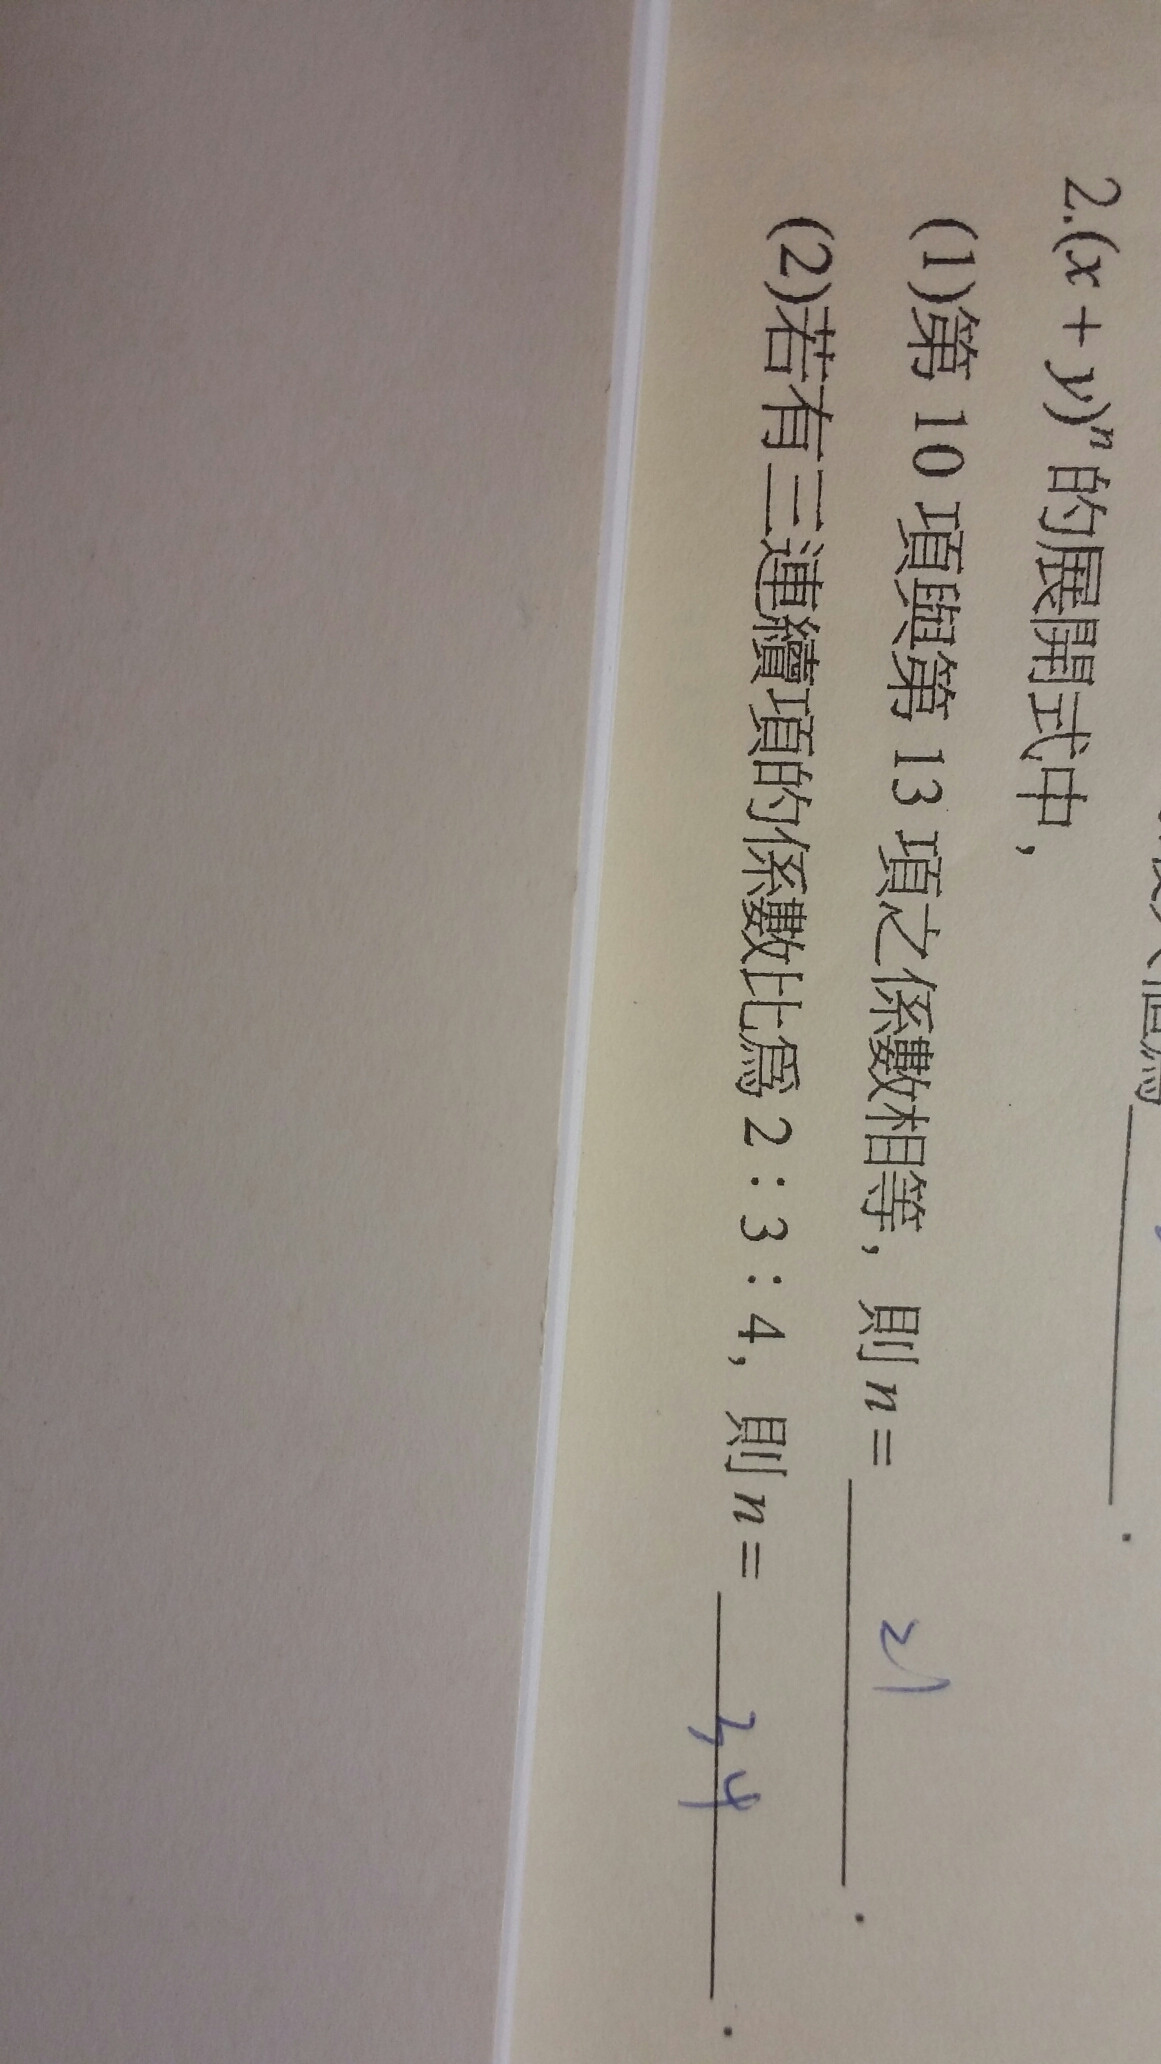 2.(x + y)ⁿ 的展開式中，
(1)第 10 項與第 13 項之係數相等，則 n = 21 .
(2)若有三連續項的係數比為 2 : 3 : 4，則 n = 34 .